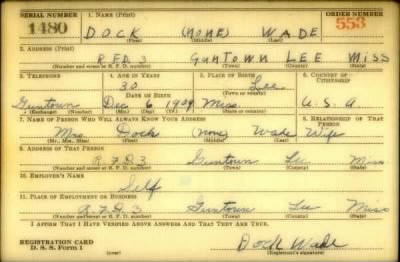 SERIAL NUMBER 1. NAME (Print) ORDER NUMBER
1480 DOCK (NONE) WADE 553
(First) (Middle) (Last)
2. ADDRESS (Print)
R.F.D. 3 GUNTOWN LEE MISS
(Number and street or R. F. D. number) (Town) (County) (State)
3. TELEPHONE 4. AGE IN YEARS 5. PLACE OF BIRTH 6. COUNTRY OF CITIZENSHIP
30 Lee
DATE OF BIRTH (Town or county)
Guntown Dec 6 1909 Miss U.S.A
(Exchange) (Number) (Mo.) (Day) (Yr.) (State or country)
7. NAME OF PERSON WHO WILL ALWAYS KNOW YOUR ADDRESS 8. RELATIONSHIP OF THAT PERSON
Mrs Dock (none) Wade Wife
(Mr., Mrs., Miss) (First) (Middle) (Last)
9. ADDRESS OF THAT PERSON
R.F.D 3 Guntown Lee Miss
(Number and street or R. F. D. number) (Town) (County) (State)
10. EMPLOYER'S NAME
Self
11. PLACE OF EMPLOYMENT OR BUSINESS
R.F.D 3 Guntown Lee Miss
(Number and street or R. F. D. number) (Town) (County) (State)
I AFFIRM THAT I HAVE VERIFIED ABOVE ANSWERS AND THAT THEY ARE TRUE.
REGISTRATION CARD Dock Wade
D. S. S. Form 1 (over) (Registrant's signature)